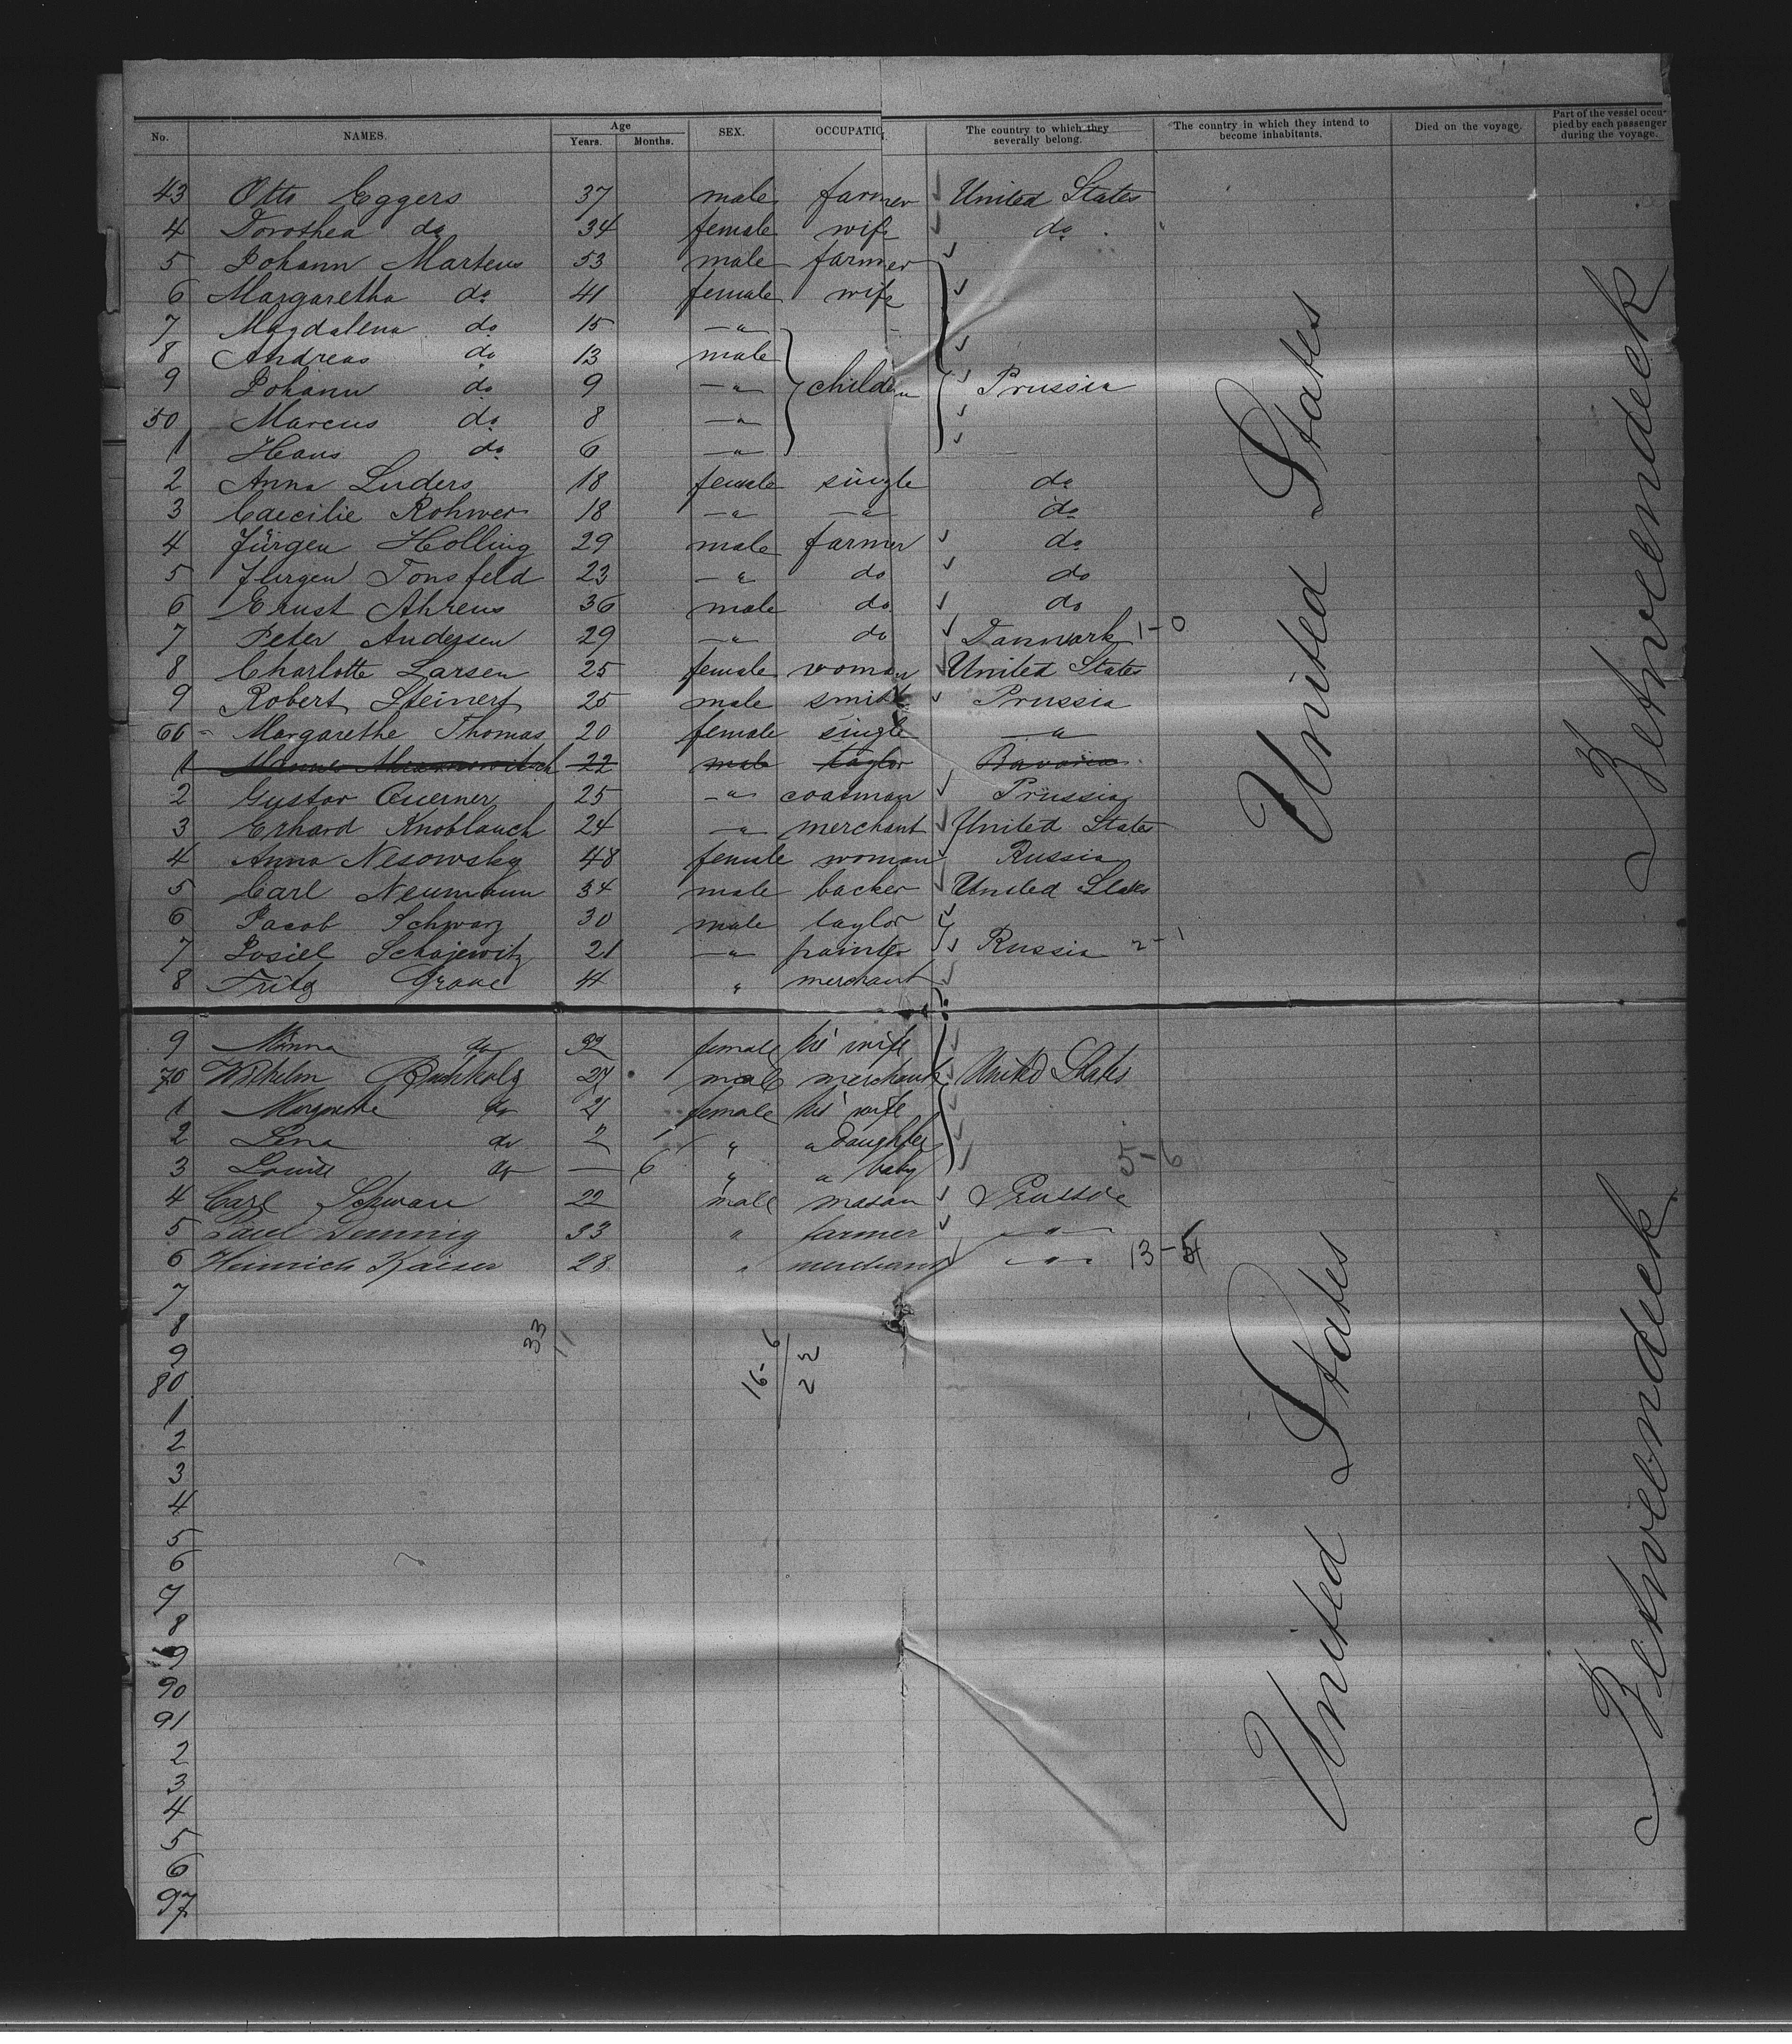 No. NAMES. Age Years. Months. SEX. OCCUPATIO The country to which they severally belong. The country in which they intend to become inhabitants. Died on the voyage. Part of the vessel occupied by each passenger during the voyage.
43 Otto Eggers 37 male farmer United States
4 Dorothea do 34 female wife do
5 Johann Martens 53 male farmer
6 Margaretha do 41 female wife
7 Magdalena do 15 —"—
8 Andreas do 13 male
9 Johann do 9 —"— children Prussia
50 Marcus do 8 —"—
1 Hans do 6 —"—
2 Anna Luders 18 female single do
3 Caecilie Rohwer 18 —"— —"— do
4 Jürgen Holling 29 male farmer do
5 Jurgen Tonsfeld 23 —"— do do
6 Ernst Ahrens 36 male do do
7 Peter Andersen 29 —"— do Danmark 1-0
8 Charlotte Larsen 25 female woman United States
9 Robert Steinert 25 male smith Prussia
60 - Margarethe Thomas 20 female single —"—
1 22 male taylor Bavaria
2 Gustav Querner 25 —"— coatman Prussia
3 Erhard Knoblauch 24 —"— merchant United States
4 Anna Nesowsky 48 female woman Russia
5 Carl Neumann 34 male backer United States
6 Jacob Schwarz 30 male taylor
7 Josiel Schajewitz 21 —"— painter Russia 2-1
8 Fritz 4 " merchant
9 Minna do 32 female his wife
70 Wilhelm Buchholz 27 male merchant United States
1 Margarethe do 21 female his wife
2 Lena do 2 " " Daughter
3 Louise do — 6 " " baby 5-6
4 Carl Schwarz 22 male mason Prussia
5 Paul Demmig 33 " farmer —"—
6 Heinrich Kaiser 28 " merchant —"— 13-5
7
8
9
80
1
2
3
4
5
6
7
8
9
90
91
2
3
4
5
6
97
33
11
16-6
22
United States
United States
Betweendeck
Betweendeck